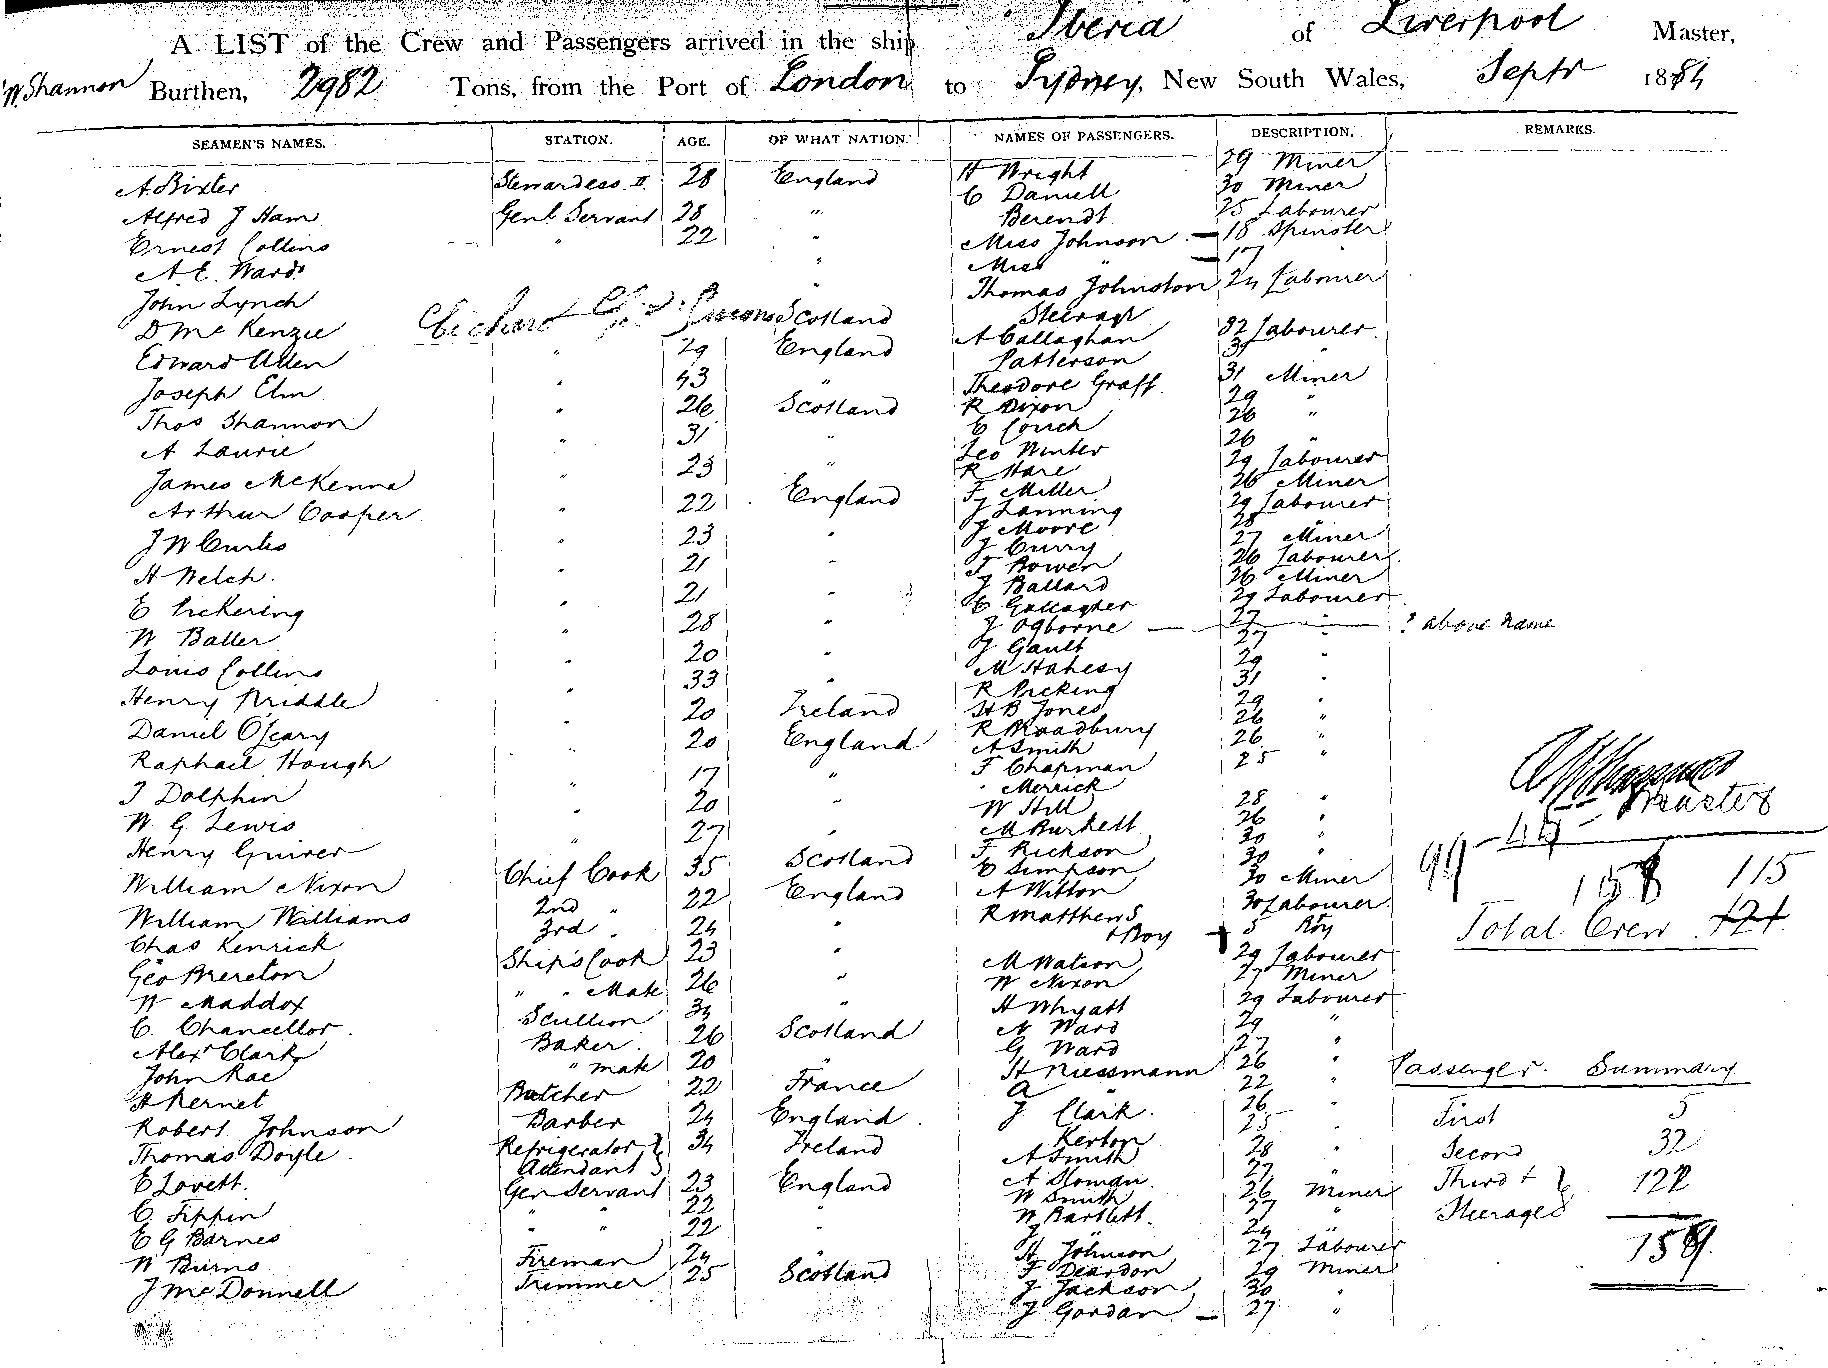 A LIST of the Crew and Passengers arrived in the ship "Iberia of Liverpool Master,
W Shannon Burthen, 2982 Tons, from the Port of London to Sydney, New South Wales, Septr 1884
SEAMEN'S NAMES. STATION. AGE. OF WHAT NATION. NAMES OF PASSENGERS. DESCRIPTION. REMARKS.
A Bixter Stewardess II 28 England H Wright 29 Miner
C Daniell 30 Miner
Alfred J Ham Genl Servant 28 " Berendt 25 Labourer
Ernest Collins " 22 " Miss Johnson — 18 Spinster
A E. Ward " Miss " — 17 "
John Lynch " Thomas Johnston 24 Labourer
D McKenzie Scotland Steerage
Edward Allen " 29 England A Callaghan 32 Labourer
Patterson "
Joseph Elm " 43 " Theodore Graff 31 Miner
Thos Shannon " 26 Scotland R Dixon 29 "
E Couch 26 "
A Laurie " 31 " Leo Winter 26 "
James McKenna " 23 " R Hare 29 Labourer
F Miller 26 Miner
Arthur Cooper " 22 England J Lanning 29 Labourer
J Moore 28 "
J W Curtis " 23 " J Curry 27 Miner
H Welch " 21 " T Bowen 26 Labourer
J Ballard 26 Miner
E Pickering " 21 " E Gallagher 29 Labourer
W Baller " 28 " J Ogborne — 27 " ? above name
J Gault 27 "
Louis Collins " 20 " M Hahesy 29 "
Henry Priddle " 33 " R Picking 31 "
Daniel O'Leary " 20 Ireland H B Jones 29 "
R Broadbury 26 "
Raphael Hough " 20 England A Smith 26 "
F Chapman 25 "
J Dolphin " 17 " Merrick
W. G Lewis " 20 " W Hill 28 "
M Burkett 26 "
Henry Guiver " 27 " F Rickson 30 "
William Nixon Chief Cook 35 Scotland E Simpson 30 "
A Witton 30 Miner
William Williams 2nd " 22 England R Matthews 30 Labourer
Chas Kenrick 3rd " 24 " + Boy + 5 Boy
Geo Brereton Ship's Cook 23 " M Watson 29 Labourer
W Maddox " " Mate 26 " W Nixon 27 Miner
C. Chancellor Scullion 34 " H Whyatt 29 Labourer
Alexr Clark Baker 26 Scotland N Ward 29 "
G Ward 27 "
John Rae " mate 20 " H Niessmann 26 "
H Pernet Butcher 22 France A " 22 "
Robert Johnson Barber 24 England J Clark 26 "
Kerton 25 "
Thomas Doyle Refrigerator Attendant 34 Ireland A Smith 28 "
E Lovett Gen Servant 23 England A Sloman 27 "
C. Tippin " " 22 W Smith 26 Miner
E G Barnes " " 22 " W Bartlett 27 "
J " 24 "
W Burns Fireman 24 " H Johnson 27 Labourer
J McDonnell Trimmer 25 Scotland F Deardon 29 Miner
J Jackson 30 "
J Gordan — 27 "
Master
99
158 115
Total Crew 121
Passenger Summary
First 5
Second 32
Third + Steerage 122
159